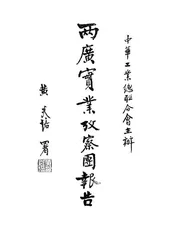 中華工業總聯合會主辦
兩廣實業攷察團報告
黃
署